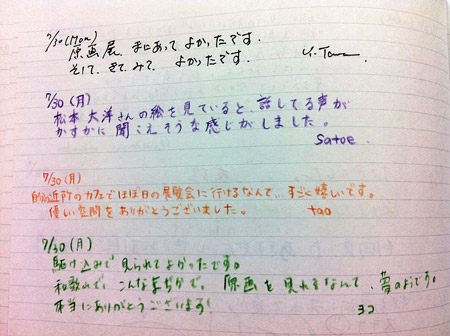 7/30(Mon)
原画展、まにあって よかったです.
そして、きて、みて、 よかったです。
7/30(月)
松本大洋さんの絵を見ていると、話してる声が
かすかに聞こえそうな感じがしました。
satoe.
7/30(月)
近所のカフェでほぼ日の展覧会に行けるなんて…すごく嬉しいです。
優しい空間をありがとうございました。 tao
7/30(月)
駆け込みで見られてよかったです。
和歌山で、こんな身ぢかで、原画を見れるなんて、夢のようです。
本当にありがとうございます!
ヨコ